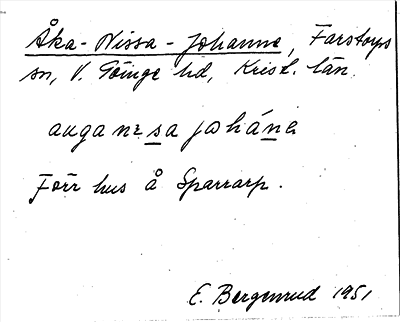 Åka-Nissa-Johanne, Farstorps
sn, V. Göinge hd, Krist. län.
Förr hus å Sparrarp.
E. Bergenrud 1951